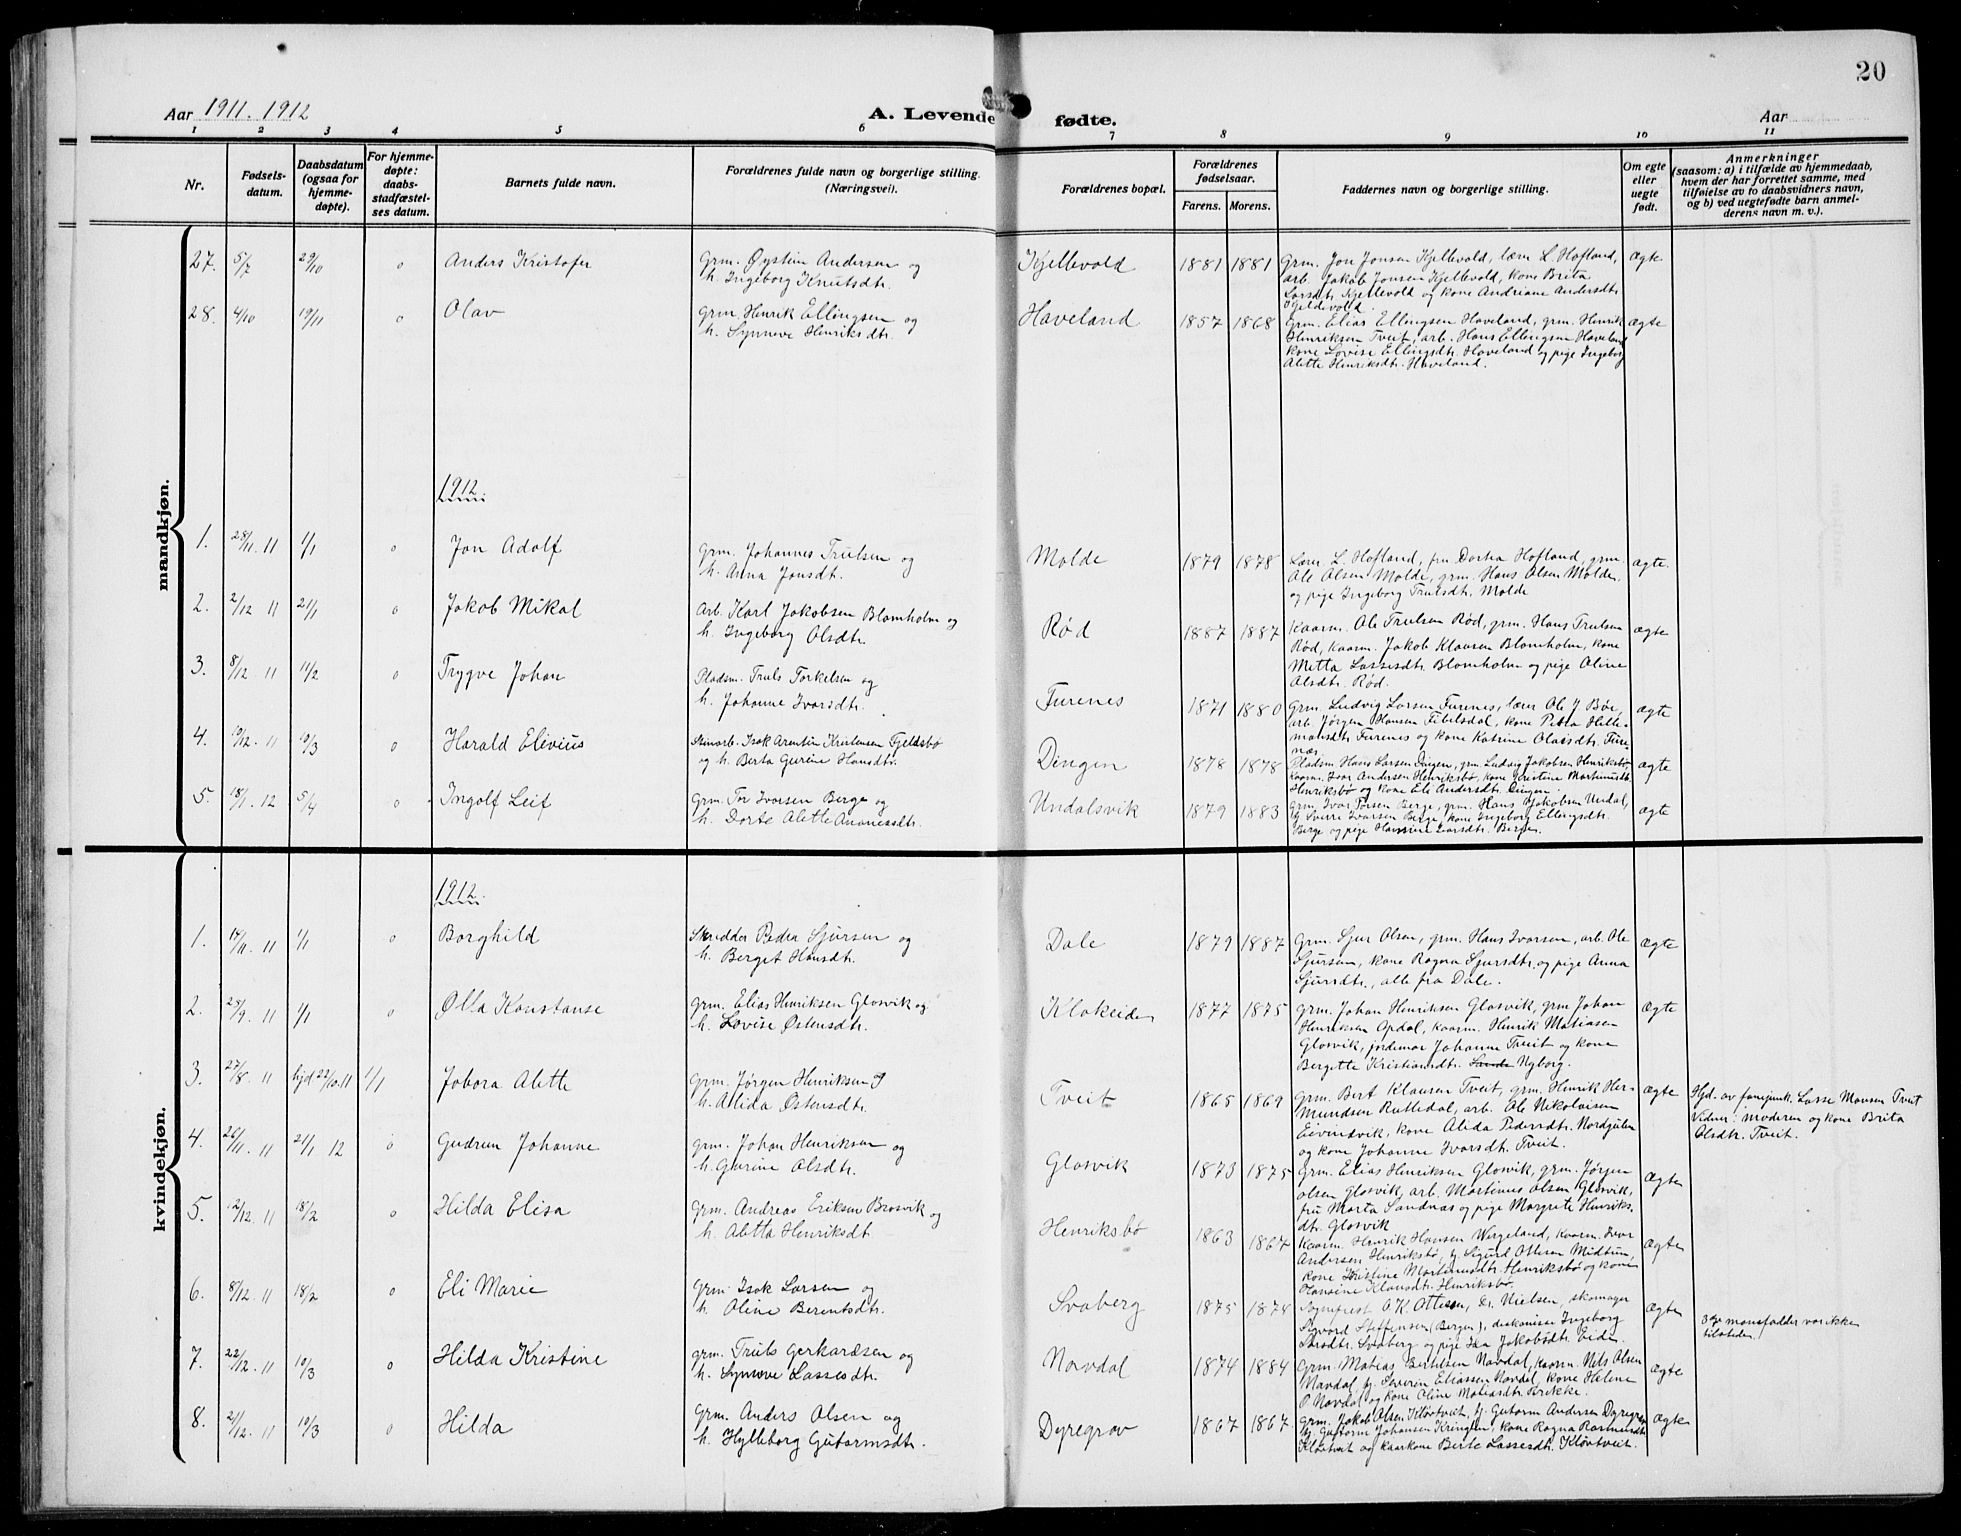 20
Aar 1911. 1912
A. Levende fødte.
Aar
1 2 3 4 5 6 7 8 9 10 11
Nr.
Fødsels-
datum.
Daabsdatum
(ogsaa for
hjemme-
døpte).
For hjemme-
døpte:
daabs-
stadfæstel-
ses datum.
Barnets fulde navn.
Forældrenes fulde navn og borgerlige stilling.
(Næringsvei).
Forældrenes bopæl.
Forældrenes
fødselsaar.
Farens. Morens.
Faddernes navn og borgerlige stilling.
Om egte
eller
uegte
født.
Anmerkninger
(saasom: a) i tilfælde av hjemmedaab,
hvem der har forrettet samme, med
tilføielse av to daabsvidners navn,
og b) ved uegtefødte barn anmel-
derens navn m. v.).
mandkjøn.
27. 5/7 29/10 0 Anders Kristofer
Grm. Øystein Andersen og
h. Ingeborg Knutsdtr.
Kjellevold 1881 1881
Grm. Jon Jonsen Kjellevold, lærer L. Hofland,
arb. Jakob Jonsen Kjellevold, kone Brita
Larsdtr. Kjellevold og kone Andriane Andersdtr.
Gjeldevold.
Ægte
28. 4/10 19/11 0 Olav
Grm. Henrik Ellingsen og
h. Synneve Henriksdtr.
Haveland 1857 1868
Grm. Elias Ellingsen Haveland, grm. Henrik
Henriksen Tveit, arb. Hans Ellingsen Haveland
kone Lovise Ellingsdtr. Haveland og pige Ingeborg
Alette Henriksdtr. Haveland.
Ægte
1912.
1. 28/11. 11 1/1 0 Jon Adolf
Grm. Johannes Trulsen og
h. Anna Jonsdtr.
Molde 1879 1878
Lærer L. Hofland, fru Dortea Hofland, grm.
Ole Olsen Molde, grm. Hans Olsen Molde,
og pige Ingeborg Trulsdtr. Molde
Ægte.
2. 2/12 11 21/1 0 Jakob Mikal
Arb. Karl Jakobsen Blomholm og
h. Ingeborg Olsdtr.
Rød 1887 1887
Kaarm. Ole Trulsen Rød, grm. Hans Trulsen
Rød, kaarm. Jakob Klausen Blomholm, kone
Metta Lassesdtr. Blomholm og pige Oline
Olsdtr. Rød.
Ægte
3. 8/12 11 11/2 0 Trygve Johan
Pladsm. Truls Torkelsen og
h. Johanne Ivarsdtr.
Furenes 1871 1880
Grm. Ludvig Larsen Furenes, lærer Ole J. Bøe,
arb. Jørgen Hansen Tibelsdal, kone Petra Hille-
mansdtr. Furenes og kone Katrine Olassdtr. Fure-
næs.
Ægte
4. 19/12. 11 10/3 0 Harald Elevius
Stenarb. Isak Arentin Kristensen Fjeldsbø
og h. Berta Gurine Hansdtr.
Dingen 1878 1878
Pladsm. Hans Larsen Dingen, grm. Ludvig Jakobsen Henriksbø,
kaarm. Ivar Andersen Henriksbø, kone Kristine Martinusdtr.
Henriksbø og kone Eli Andersdtr. Dingen.
Ægte
5. 18/1. 12 5/4 0 Ingolf Leif
Grm. Tor Ivarsen Berge og
h. Dorte Alette Ananiasdtr.
Undalsvik 1879 1883
Grm. Ivar Torsen Berge, grm. Hans Jakobsen Undal,
tj. Sverre Ivarsen Berge, kone Ingeborg Ellingsdtr.
Berge og pige Hansine Ivarsdtr. Bergen.
Ægte
kvindekjøn.
1912.
1. 14/11. 11 1/1 0 Borghild
Skredder Peder Sjursen og
h. Berget Hansdtr.
Dale 1879 1887
Grm. Sjur Olsen, grm. Hans Ivarsen, arb. Ole
Sjursen, kone Ragna Sjursdtr. og pige Anna
Sjursdtr., alle fra Dale.
Ægte
2. 25/9. 11 1/1 0 Olla Konstanse
Grm. Elias Henriksen Glosvik og
h. Lovise Østensdtr.
Klakeiden 1877 1875
Grm. Johan Henriksen Glosvik, grm Johan
Henriksen Opdal, kaarm. Henrik Matiasen
Glosvik, jordemor Johanne Tveit og kone
Bergette Kristiansdtr. Nyborg.
Ægte
3. 27/8. 11 hjd 22/10. 11 1/1 Jobora Alette
Grm. Jørgen Henriksen
h. Alida Østensdtr.
Tveit 1865 1869
Grm. Bert Klausen Tveit, grm. Henrik Her-
mundsen Rutledal, arb. Ole Nikolaisen
Eivindvik, kone Alida Pedersdtr. Nordgulen
og kone Johanne Ivarsdtr. Tveit.
Ægte
Hjd. av forpgmk. Lasse Monsen Tveit
Vidner: moderen og kone Brita
Olsdtr. Tveit.
4. 26/11. 11 21/1 12 0 Gudrun Johanne
Grm. Johan Henriksen og
h. Gurine Olsdtr.
Glosvik 1873 1875
Grm. Elias Henriksen Glosvik, grm. Jørgen
Olsen Glosvik, arb. Martinus Olsen Glosvik,
fru Marta Sandnæs og pige Margrete Henriks-
dtr. Glosvik
Ægte
5. 12/12. 11 18/2 0 Hilda Elisa
Grm. Andreas Eriksen Brosvik og
h. Aletta Henriksdt
Henriksbø 1863 1867
Kaarm. Henrik Hansen Wergeland, kaarm. Ivar
Andersen Henriksbø, tj. Sigurd Ottesen Midtun,
kone Kristine Martinusdtr. Henriksbø og kone
Hansine Klausdtr. Henriksbø.
Ægte
6. 8/12. 11 18/2 0 Eli Marie
Grm. Isak Larsen og
h. Oline Berentsdtr.
Svaberg 1875 1874
Sogneprest O. K. Ottesen, Dr. Nielsen, skomager
Sigvard Steffensen (Bergen), diakonisse Ingeborg
Larsdtr. Svaberg og pige Ida Jakobsdtr. Eide.
Ægte
3dje mandsfadder var ikke
tilstede.
7. 22/12. 11 10/3 0 Hilda Kristine
Grm. Truls Gerhardsen og
h. Synneve Lassesdtr.
Navdal 1874 1884
Grm. Matias Bertelsen Navdal, kaarm. Nils Olsen
Navdal, tj. Severin Eliassen Navdal, kone Helene
P. Navdal og kone Oline Matiasdtr. Brekke.
Ægte
8. 21/12. 11 10/3 0 Hilda
Grm. Anders Olsen og
h. Hylleborg Gutormsdtr.
Dyregrov 1867 1867
Grm. Jakob Olsen Kløvtveit, tj. Gutorm Andersen Dyregrov
tj. Gutorm Johansen Kringlen, kone Ragna Rasmusdtr.
Kløvtveit og kaarkone Berte Lassesdtr. Kløvtveit.
Ægte